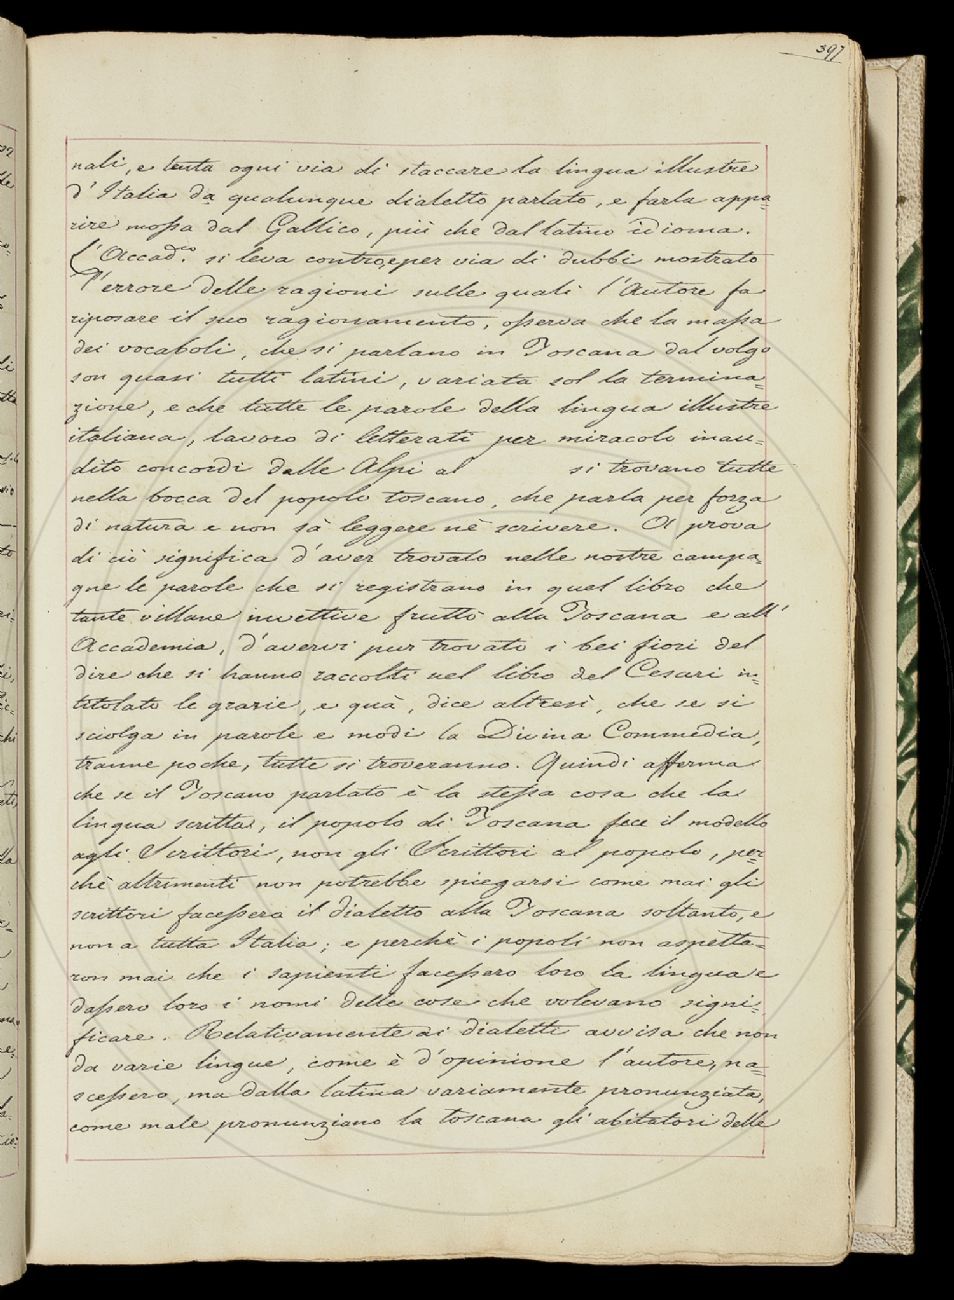 397
nali, e tenta ogni via di staccare la lingua illustre
d'Italia da qualunque dialetto parlato, e farla appa=
rire mossa dal Gallico, più che dal latino idioma.
L'Accad.co si leva contro, e per via di dubbi mostrato
l'errore delle ragioni sulle quali l'Autore fa
riposare il suo ragionamento, osserva che la massa
dei vocaboli, che si parlano in Toscana dal volgo
son quasi tutti latini, variata sol la termina=
zione, e che tutte le parole della lingua illustre
italiana, lavoro di letterati per miracolo inau=
dito concordi dalle Alpi al si trovano tutte
nella bocca del popolo toscano, che parla per forza
di natura e non sà leggere nè scrivere. A prova
di ciò significa d'aver trovato nelle nostre campa=
gne le parole che si registrano in quel libro che
tante villane invettive fruttò alla Toscana e all'
Accademia, d'avervi pur trovati i bei fiori del
dire che si hanno raccolti nel libro del Cesari in=
titolato le grazie, e quà, dice altresì, che se si
sciolga in parole e modi la Divina Commedia,
tranne poche, tutte si troveranno. Quindi afferma
che se il Toscano parlato è la stessa cosa che la
lingua scritta, il popolo di Toscana fece il modello
agli Scrittori, non gli Scrittori al popolo, per=
chè altrimenti non potrebbe spiegarsi come mai gli
scrittori facessero il dialetto alla Toscana soltanto, e
non a tutta Italia; e perchè i popoli non aspetta=
ron mai che i sapienti facessero loro la lingua e
dassero loro i nomi delle cose che volevano signi=
ficare. Relativamente ai dialetti avvisa che non
da varie lingue, come è d'opinione l'autore, na=
scessero, ma dalla latina variamente pronunziata,
come male pronunziano la toscana gli abitatori delle